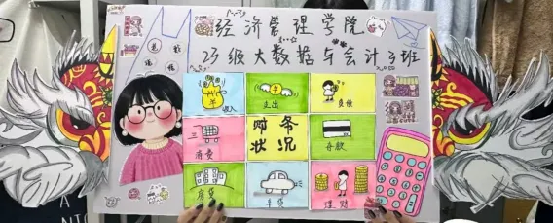 经济管理学院
23级大数据与会计3班
收入
支出
负债
消费
财务
状况
存款
房贷
车贷
理财